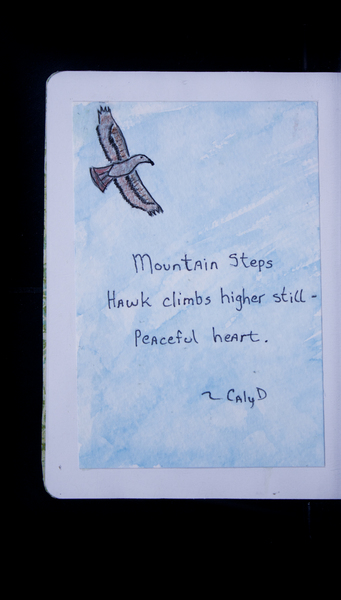 Mountain Steps
Hawk climbs higher still -
Peaceful heart.
~ CalyD